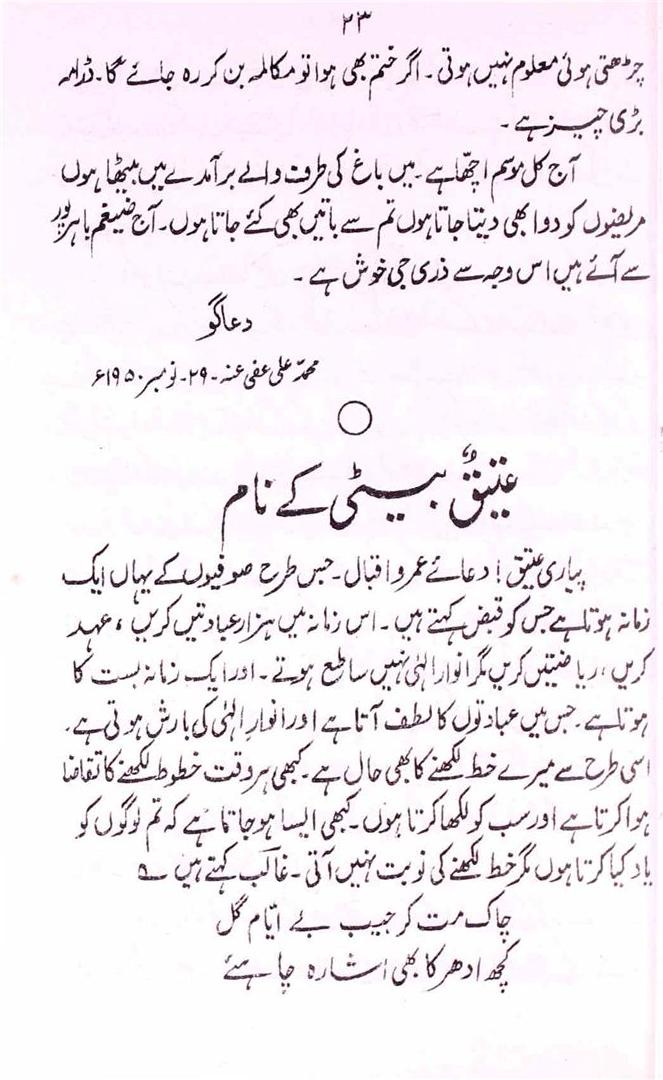 ۲۳
چڑھتی ہوئی معلوم نہیں ہوتی۔ اگر ختم بھی ہوا تو مکالمہ بن کر رہ جائے گا۔ ڈرامہ
بڑی چیز ہے۔
آج کل موسم اچھا ہے۔ میں باغ کی طرف والے برآمدے میں بیٹھا ہوں
مریضوں کو دوا بھی دیتا جاتا ہوں تم سے باتیں بھی کئے جاتا ہوں۔ آج ضیغم باہر پور
سے آئے ہیں اس وجہ سے ذری جی خوش ہے۔
دعاگو
محمد علی عفی عنہ۔ ۲۹۔ نومبر ۱۹۵۰ء
عتیق بیٹی کے نام
پیاری عتیق! دعائے عمر و اقبال۔ جس طرح صوفیوں کے یہاں ایک
زمانہ ہوتا ہے جس کو قبض کہتے ہیں۔ اس زمانہ میں ہزار عبادتیں کریں، عہد
کریں، ریاضتیں کریں مگر انوار الٰہی نہیں ساطع ہوتے۔ اور ایک زمانہ بست کا
ہوتا ہے۔ جس میں عبادتوں کا لطف آتا ہے اور انوار الٰہی کی بارش ہوتی ہے۔
اسی طرح سے میرے خط لکھنے کا بھی حال ہے۔ کبھی ہر وقت خطوط لکھنے کا تقاضا
ہوا کرتا ہے اور سب کو لکھا کرتا ہوں۔ کبھی ایسا ہو جاتا ہے کہ تم لوگوں کو
یاد کیا کرتا ہوں مگر خط لکھنے کی نوبت نہیں آتی۔ غالب کہتے ہیں ؎
چاک مت کر جیب بے ایّام گل
کچھ ادھر کا بھی اشارہ چاہئے